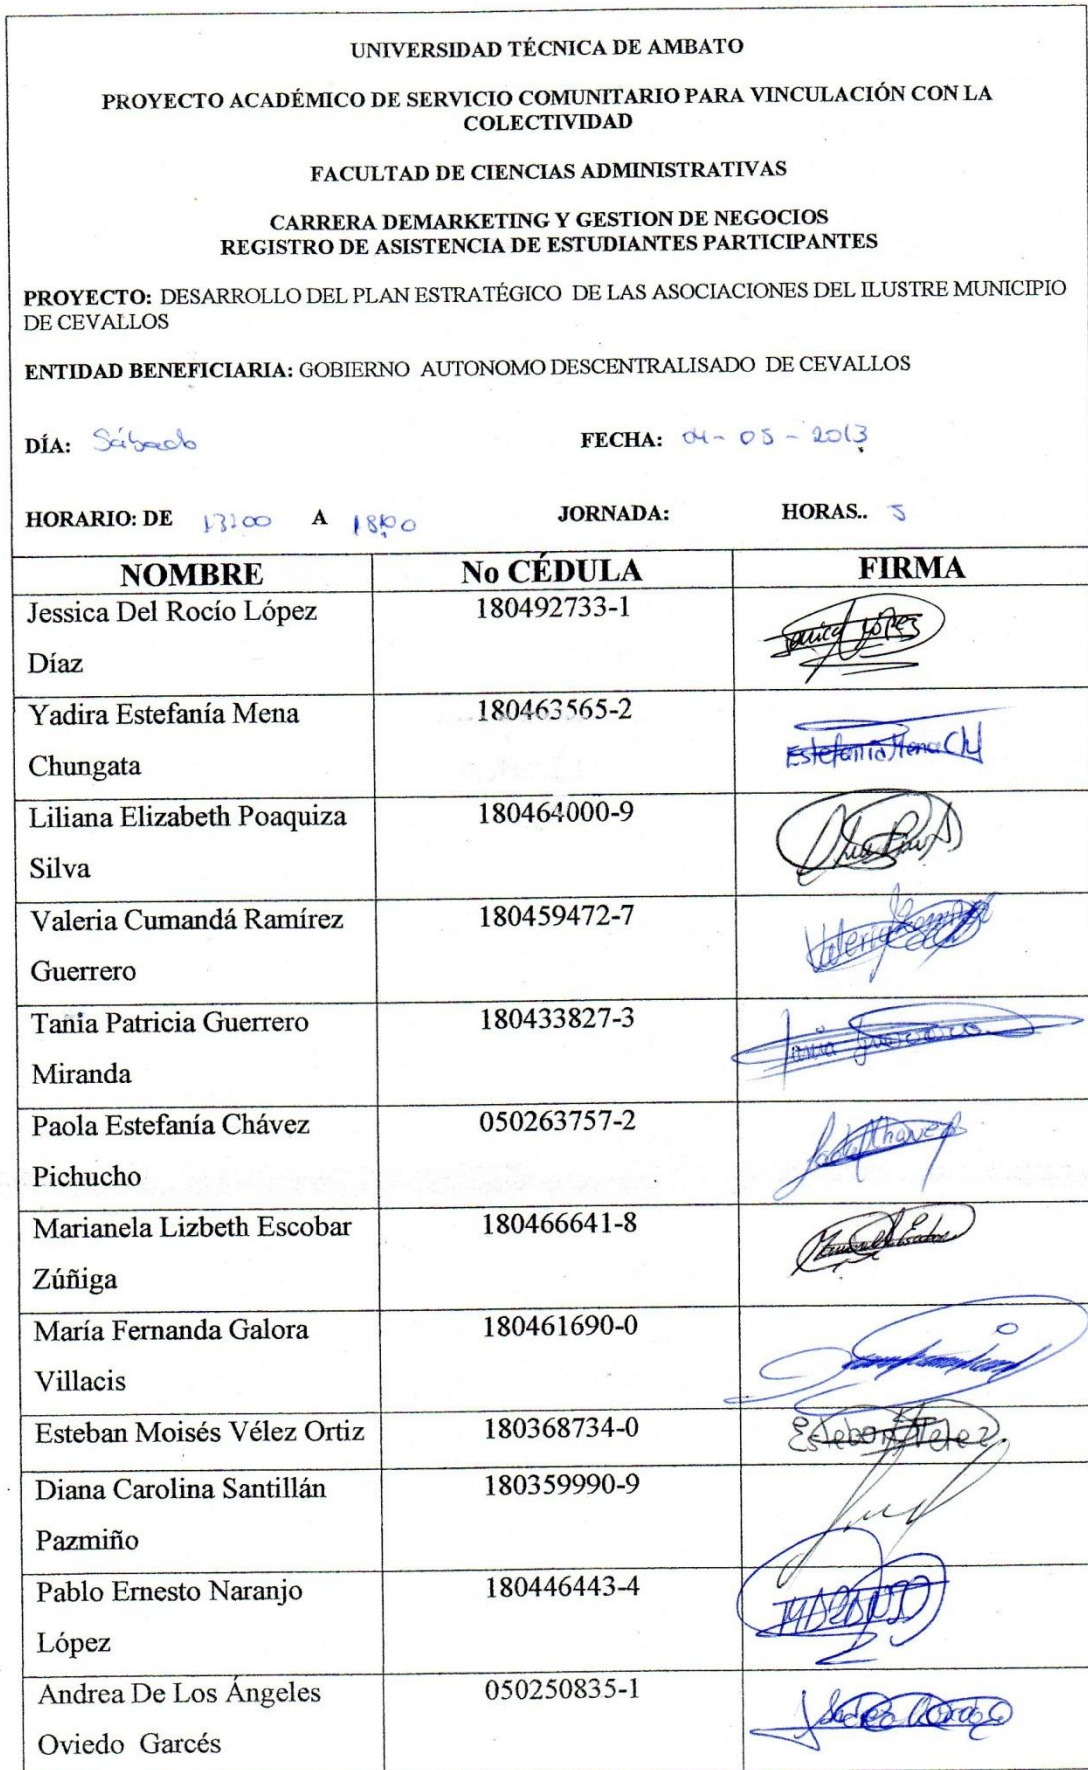 UNIVERSIDAD TÉCNICA DE AMBATO
PROYECTO ACADÉMICO DE SERVICIO COMUNITARIO PARA VINCULACIÓN CON LA
COLECTIVIDAD
FACULTAD DE CIENCIAS ADMINISTRATIVAS
CARRERA DEMARKETING Y GESTION DE NEGOCIOS
REGISTRO DE ASISTENCIA DE ESTUDIANTES PARTICIPANTES
PROYECTO: DESARROLLO DEL PLAN ESTRATÉGICO DE LAS ASOCIACIONES DEL ILUSTRE MUNICIPIO
DE CEVALLOS
ENTIDAD BENEFICIARIA: GOBIERNO AUTONOMO DESCENTRALISADO DE CEVALLOS
DÍA: Sábado FECHA: 04-05-2013
HORARIO: DE 13:00 A 18:00 JORNADA: HORAS.. 5
NOMBRE No CÉDULA FIRMA
Jessica Del Rocío López 180492733-1
Díaz
Yadira Estefanía Mena 180463565-2 Estefania Mena Ch
Chungata
Liliana Elizabeth Poaquiza 180464000-9
Silva
Valeria Cumandá Ramírez 180459472-7 Valeria
Guerrero
Tania Patricia Guerrero 180433827-3 Tania Guerrero
Miranda
Paola Estefanía Chávez 050263757-2
Pichucho
Marianela Lizbeth Escobar 180466641-8
Zúñiga
María Fernanda Galora 180461690-0
Villacis
Esteban Moisés Vélez Ortiz 180368734-0 Esteban Velez
Diana Carolina Santillán 180359990-9
Pazmiño
Pablo Ernesto Naranjo 180446443-4
López
Andrea De Los Ángeles 050250835-1
Oviedo Garcés